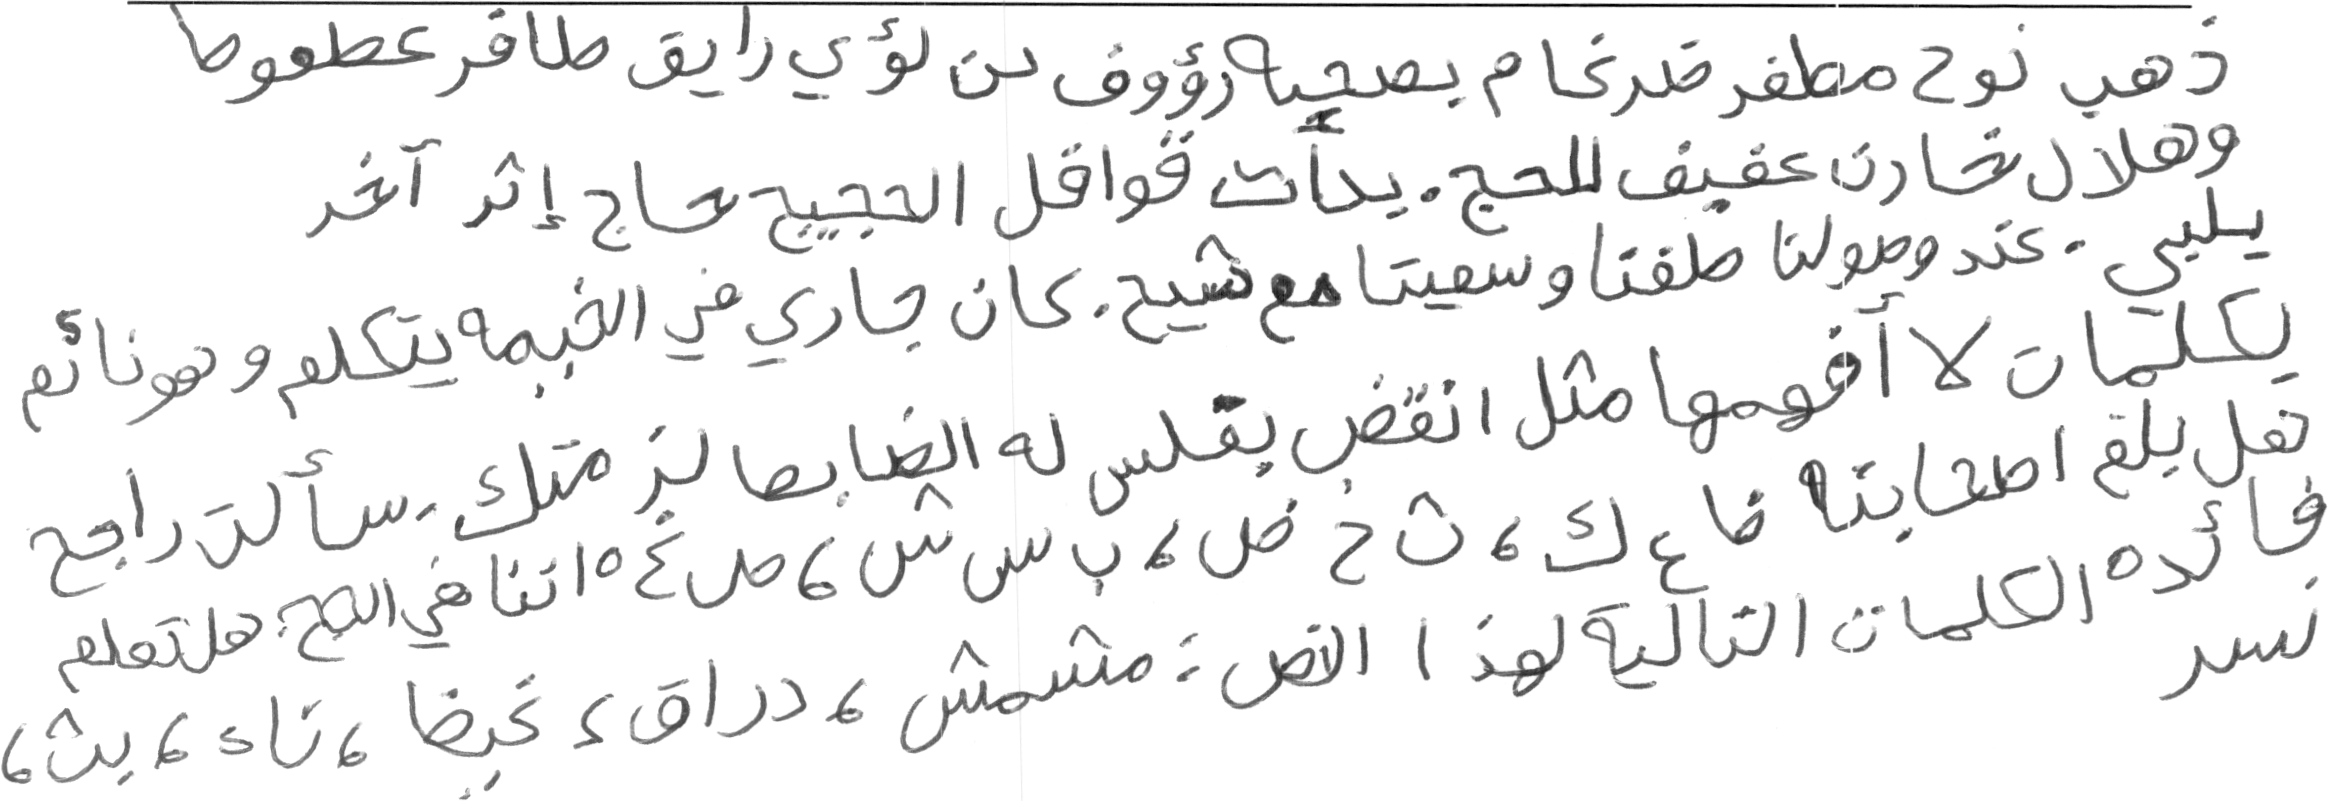 ذهب نوح مظفر ضرغام بصحبة رؤوف بن لؤي رايق ظافر عطعوط
وهلال خازن عفيف للحج. بدأت قوافل الحجيج حاج إثر آخر
يلبي. عند وصولنا طفنا وسعينا مع شيخ. كان جاري في الخيمه يتكلم وهو نائم
بكلمات لا أفهمها مثل انقض بقلس له الضابط لز متك. سألت راجح
هل بلغ اصحابته ضاع ك، ث خ ض، ب س ش، ص غ ه اننا في الحج. هل تعلم
فائده الكلمات التالية لهذا النص: مشمش، دراق، غيظ، ناء، بث،
نسر